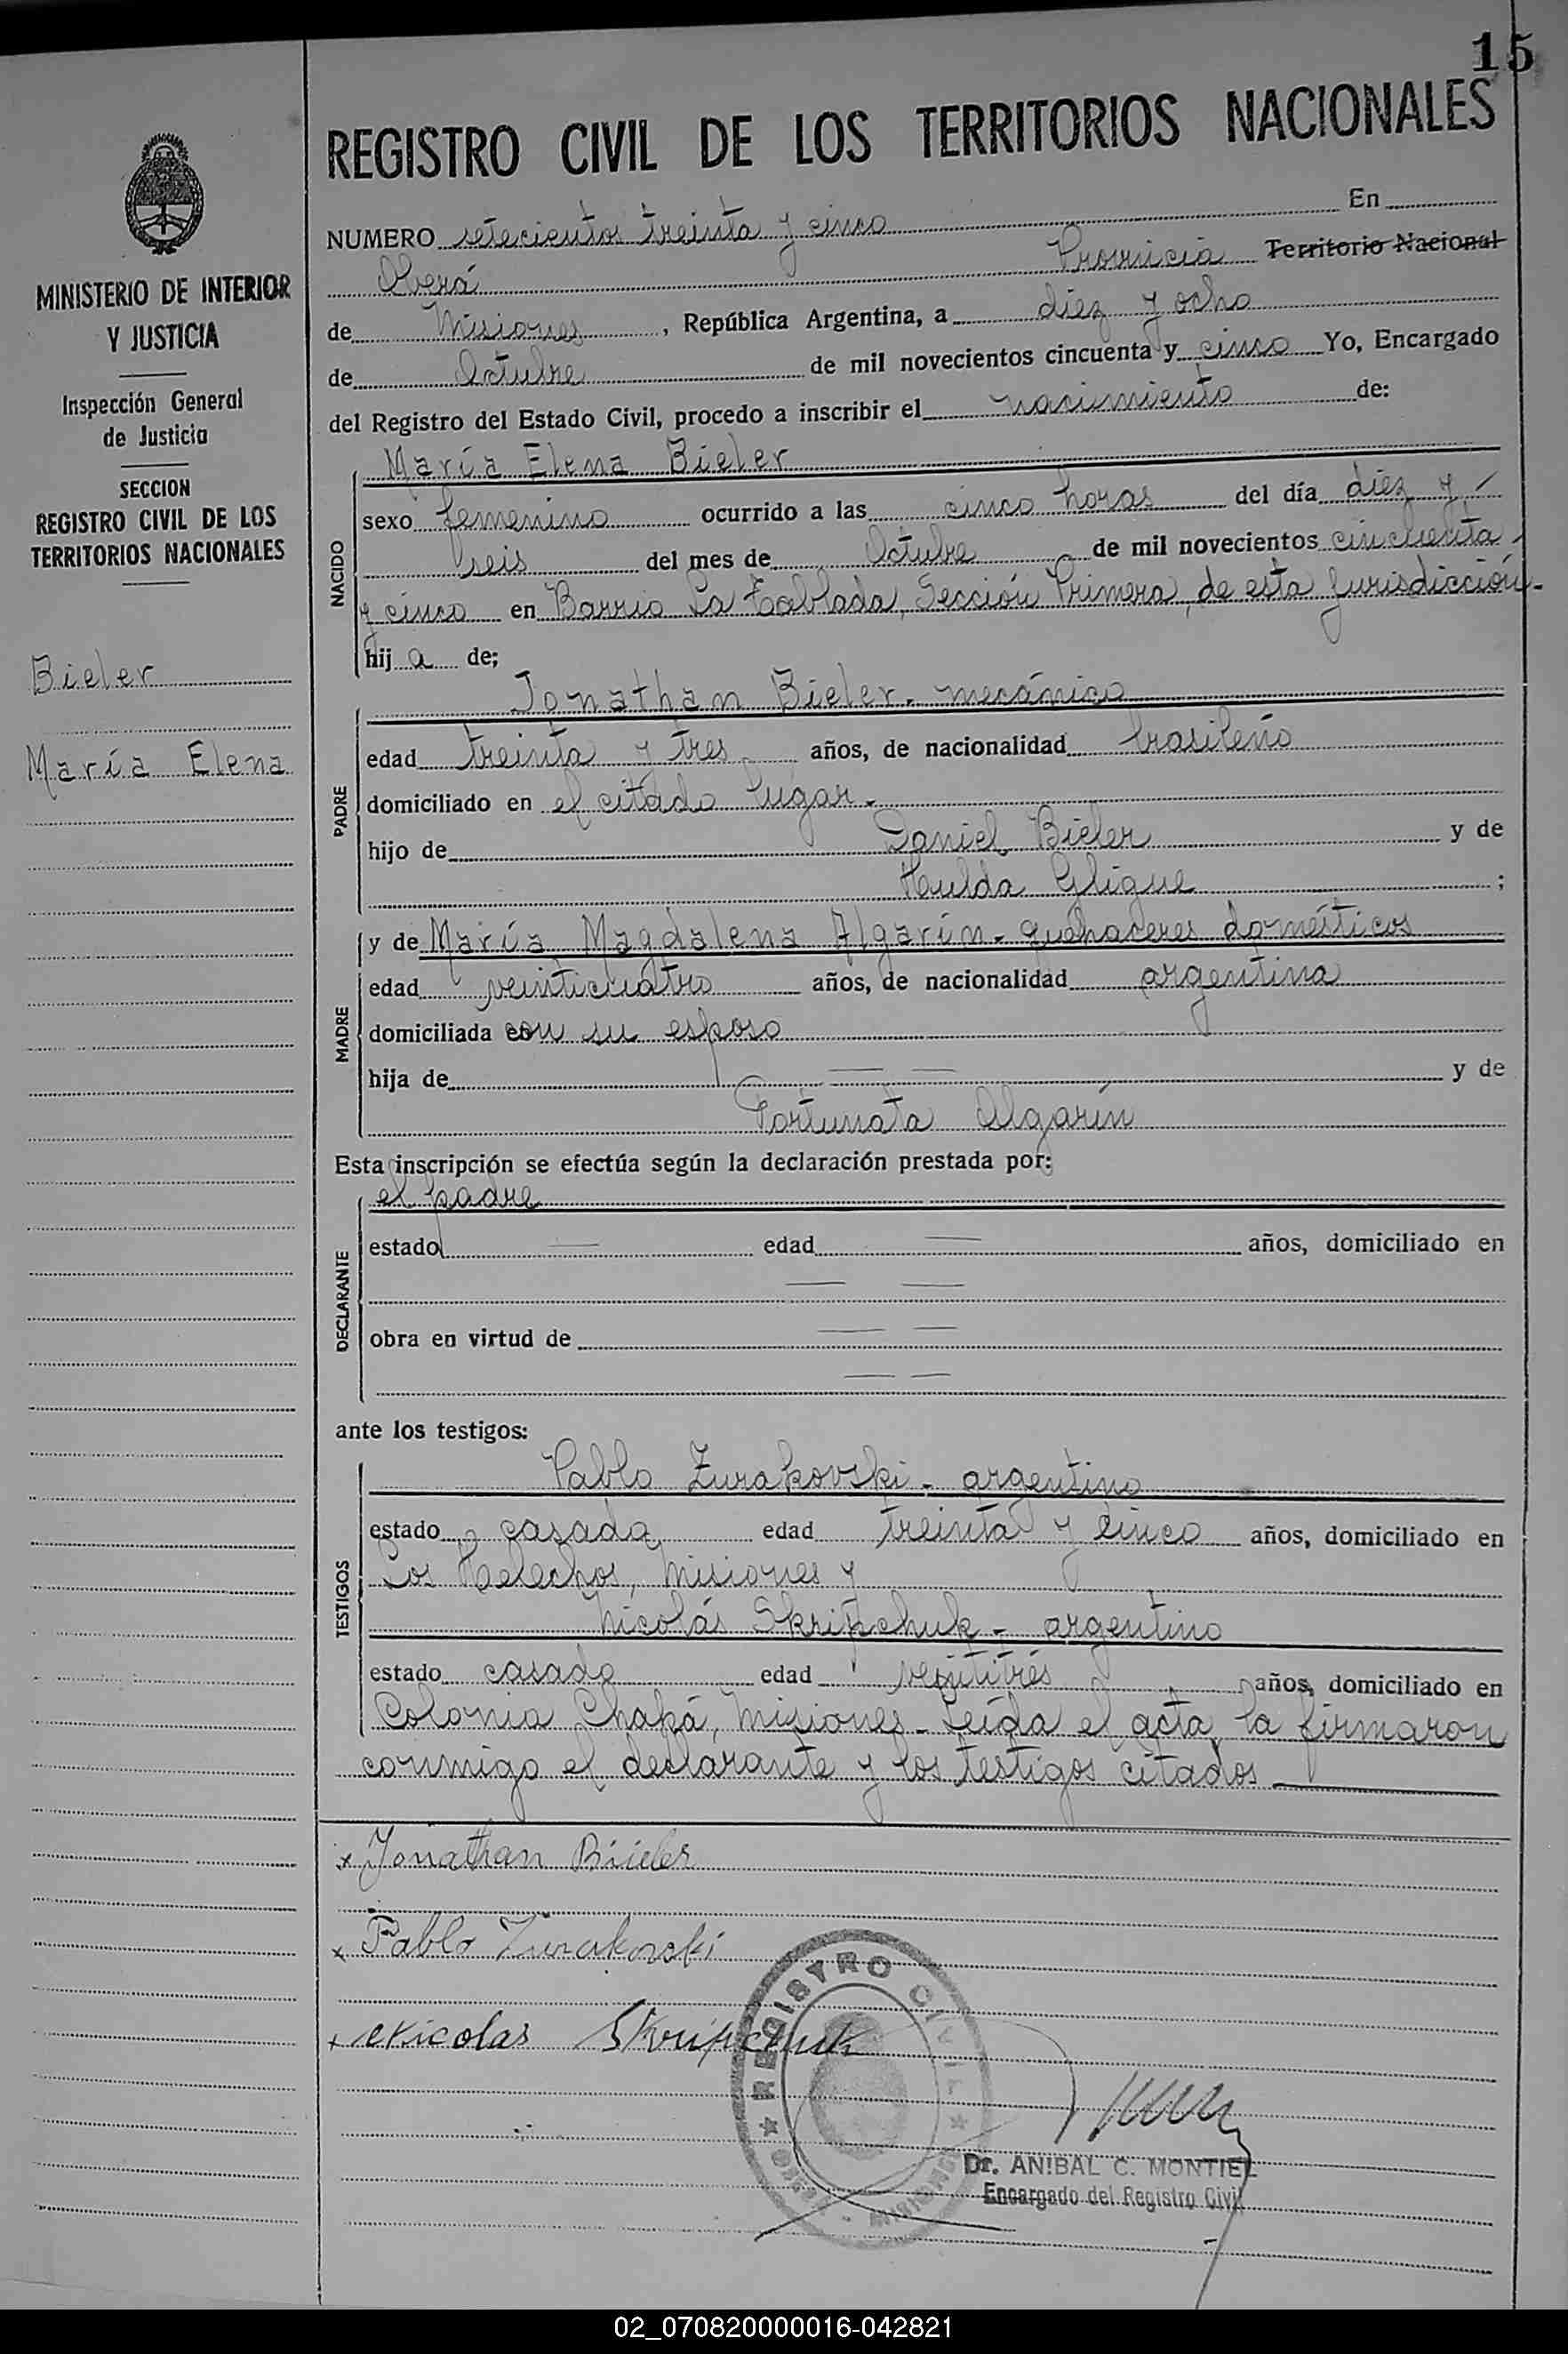 15
REGISTRO CIVIL DE LOS TERRITORIOS NACIONALES
MINISTERIO DE INTERIOR
Y JUSTICIA
Inspección General
de Justicia
SECCION
REGISTRO CIVIL DE LOS
TERRITORIOS NACIONALES
Bieler
María Elena
NUMERO setecientos treinta y cinco En
Oberá Provincia Territorio Nacional
de Misiones, República Argentina, a diez y ocho
de Octubre de mil novecientos cincuenta y cinco Yo, Encargado
del Registro del Estado Civil, procedo a inscribir el nacimiento de:
NACIDO
María Elena Bieler
sexo femenino ocurrido a las cinco horas del día diez y
seis del mes de Octubre de mil novecientos cincuenta
y cinco en Barrio La Tablada, Sección Primera, de esta Jurisdicción-
hija de;
PADRE
Jonathan Bieler. mecánico
edad treinta y tres años, de nacionalidad brasileño
domiciliado en el citado lugar.
hijo de Daniel Bieler y de
Hulda Gligue ;
MADRE
y de María Magdalena Algarín- quehaceres domésticos
edad veinticuatro años, de nacionalidad argentina
domiciliada con su esposo
hija de — — y de
Fortunata Algarín
Esta inscripción se efectúa según la declaración prestada por:
DECLARANTE
el padre
estado — edad — años, domiciliado en
— —
obra en virtud de — —
— —
ante los testigos:
TESTIGOS
Pablo Zurakovski - argentino
estado casado edad treinta y cinco años, domiciliado en
Los Helechos, Misiones y
Nicolás Skripchuk - argentino
estado casado edad veintitrés años, domiciliado en
Colonia Chapá, Misiones - Leída el acta, la firmaron
conmigo el declarante y los testigos citados
x Jonathan Biieler
x Pablo Zurakovski
x Nicolas Skripchuk
REGISTRO CIVIL
OBERÁ - MISIONES
Dr. ANIBAL C. MONTIEL
Encargado del Registro Civil
02_070820000016-042821